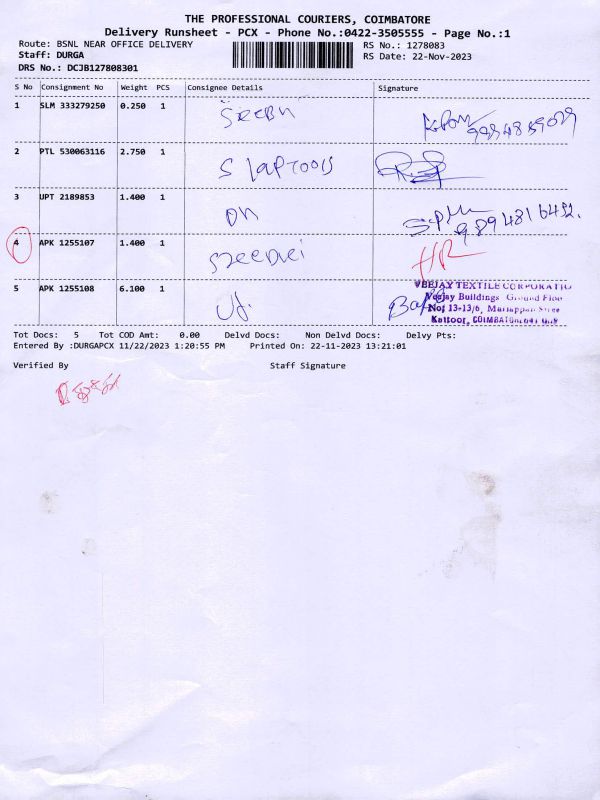 THE PROFESSIONAL COURIERS, COIMBATORE
Delivery Runsheet - PCX - Phone No.:0422-3505555 - Page No.:1
Route: BSNL NEAR OFFICE DELIVERY RS No.: 1278083
Staff: DURGA RS Date: 22-Nov-2023
DRS No.: DCJB127808301
S No Consignment No Weight PCS Consignee Details Signature
1 SLM 333279250 0.250 1
2 PTL 530063116 2.750 1 S
3 UPT 2189853 1.400 1 ON
9894816432.
4 APK 1255107 1.400 1 HR
5 APK 1255108 6.100 1
VEEJAY TEXTILE CORPORATIO
Veejay Buildings Ground Floo
No: 13-13/6, Mariappan Stree
Kattoor, COIMBATORE-641 009
Tot Docs: 5 Tot COD Amt: 0.00 Delvd Docs: Non Delvd Docs: Delvy Pts:
Entered By :DURGAPCX 11/22/2023 1:20:55 PM Printed On: 22-11-2023 13:21:01
Verified By Staff Signature